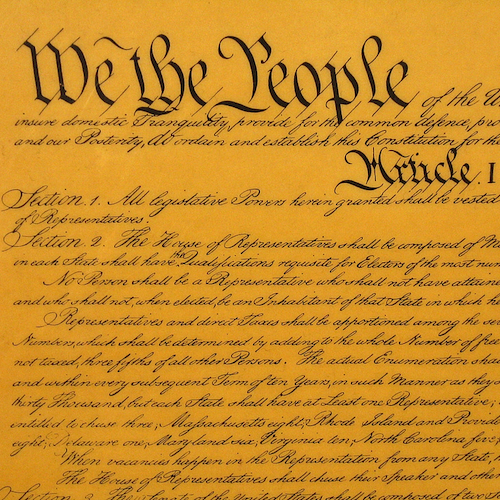 We the People of the U
insure domestic Tranquility, provide for the common defence, pro
and our Posterity, do ordain and establish this Constitution for the
Article. I
Section. 1. All legislative Powers herein granted shall be vested
of Representatives.
Section. 2. The House of Representatives shall be composed of M
in each State shall have the Qualifications requisite for Electors of the most num
No Person shall be a Representative who shall not have attain
and who shall not, when elected, be an Inhabitant of that State in which h
Representatives and direct Taxes shall be apportioned among the se
Numbers, which shall be determined by adding to the whole Number of free
not taxed, three fifths of all other Persons. The actual Enumeration shal
and within every subsequent Term of ten Years, in such Manner as they
thirty Thousand, but each State shall have at Least one Representative;
entitled to chuse three, Massachusetts eight, Rhode Island and Provid
eight, Delaware one, Maryland six, Virginia ten, North Carolina five,
When vacancies happen in the Representation from any State, t
The House of Representatives shall chuse their Speaker and other
Section. 3. The Senate of the United States shall be composed of two